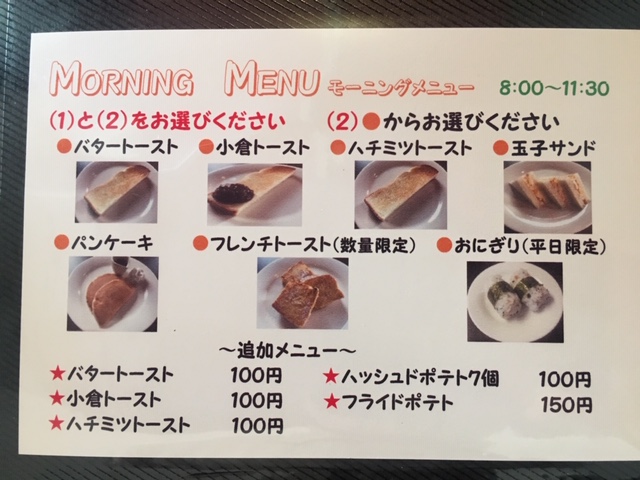 MORNING MENU モーニングメニュー 8:00～11:30
(1)と(2)をお選びください (2)●からお選びください
●バタートースト ●小倉トースト ●ハチミツトースト ●玉子サンド
●パンケーキ ●フレンチトースト(数量限定) ●おにぎり(平日限定)
～追加メニュー～
★バタートースト 100円 ★ハッシュドポテト7個 100円
★小倉トースト 100円 ★フライドポテト 150円
★ハチミツトースト 100円